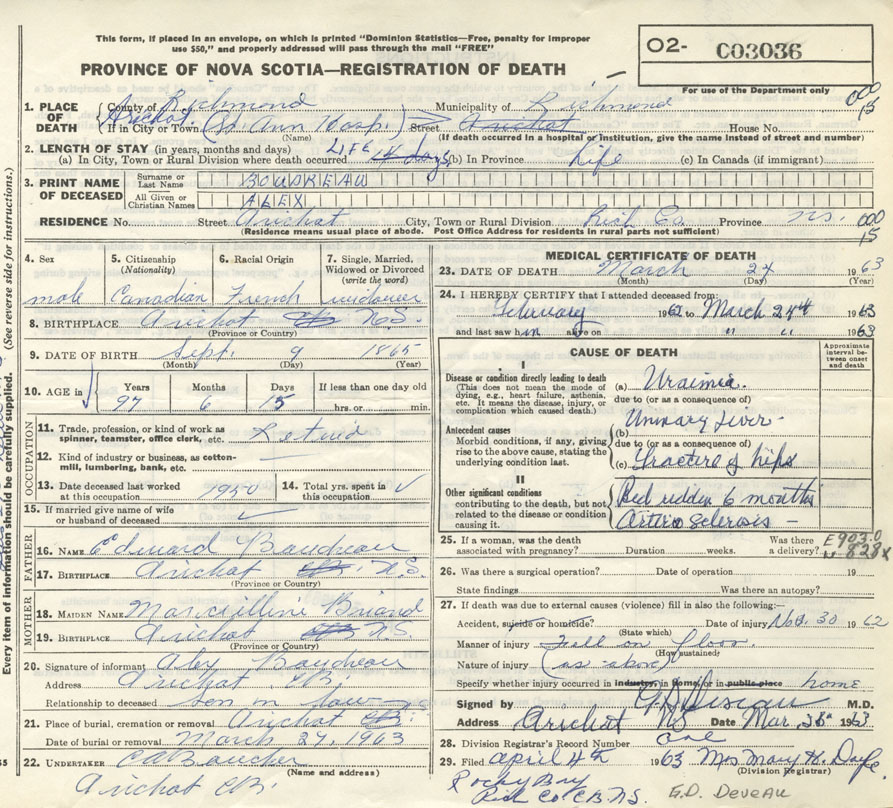 This form, if placed in an envelope, on which is printed "Dominion Statistics—Free, penalty for improper
use $50," and properly addressed will pass through the mail "FREE"
O2- CO3036
PROVINCE OF NOVA SCOTIA—REGISTRATION OF DEATH
For use of the Department only
1. PLACE OF DEATH County of Richmond Municipality of Richmond 000
Arichat If in City or Town (St. Ann Hosp.) Street Arichat House No. 15
(Name) (If death occurred in a hospital or institution, give the name instead of street and number)
2. LENGTH OF STAY (in years, months and days) LIFE
(a) In City, Town or Rural Division where death occurred 14 days (b) In Province Life (c) In Canada (if immigrant)
3. PRINT NAME OF DECEASED Surname or Last Name BOUDREAU
All Given or Christian Names ALEX
RESIDENCE No. Street Arichat City, Town or Rural Division Rich Co. Province N.S. 000
(Residence means usual place of abode. Post Office Address for residents in rural parts not sufficient) 15
4. Sex 5. Citizenship (Nationality) 6. Racial Origin 7. Single, Married, Widowed or Divorced (write the word)
male Canadian French widower
8. BIRTHPLACE Arichat CB N.S.
(Province or Country)
9. DATE OF BIRTH Sept. 9 1865
(Month) (Day) (Year)
10. AGE in Years Months Days If less than one day old
97 6 15 hrs. or min.
OCCUPATION
11. Trade, profession, or kind of work as spinner, teamster, office clerk, etc. Retired
12. Kind of industry or business, as cotton-mill, lumbering, bank, etc. —
13. Date deceased last worked at this occupation 1950 14. Total yrs. spent in this occupation ✓
15. If married give name of wife or husband of deceased ✓
FATHER
16. NAME Edward Boudreau
17. BIRTHPLACE Arichat CB N.S.
(Province or Country)
MOTHER
18. MAIDEN NAME Marcelline Briand
19. BIRTHPLACE Arichat CB N.S.
(Province or Country)
20. Signature of informant Alex Boudreau
Address Arichat CB.
Relationship to deceased son in law
21. Place of burial, cremation or removal Arichat CB.
Date of burial or removal March 27, 1963
22. UNDERTAKER CA Boucher
(Name and address)
Arichat CB.
Every item of information should be carefully supplied. (See reverse side for instructions.)
MEDICAL CERTIFICATE OF DEATH
23. DATE OF DEATH March 24 1963
(Month) (Day) (Year)
24. I HEREBY CERTIFY that I attended deceased from:
February 1962 to March 24th 1963
and last saw him alive on " " 1963
CAUSE OF DEATH
Approximate interval between onset and death
I
Disease or condition directly leading to death (a) Uraimia.
(This does not mean the mode of dying, e.g., heart failure, asthenia, etc. It means the disease, injury, or complication which caused death.)
due to (or as a consequence of)
Antecedent causes (b) Urinary
Morbid conditions, if any, giving rise to the above cause, stating the underlying condition last.
due to (or as a consequence of)
(c) Fracture of hips
II
Other significant conditions Bed ridden 6 months
contributing to the death, but not related to the disease or condition causing it. Arterio sclerosis —
25. If a woman, was the death associated with pregnancy? Duration weeks. Was there a delivery? E903.0
N 828x
26. Was there a surgical operation? Date of operation 19
State findings Was there an autopsy?
27. If death was due to external causes (violence) fill in also the following:—
Accident, suicide or homicide? Date of injury Nov. 30 1962
(State which)
Manner of injury Fell on floor.
(How sustained)
Nature of injury (as above)
Specify whether injury occurred in industry, in home, or in public place home
Signed by M.D.
Address Arichat NS Date Mar. 1963
28. Division Registrar's Record Number one
29. Filed April 4th 1963 Mrs Mary K. Doyle
(Division Registrar)
Rocky Bay
Rich Co CB. N.S.
G.D. DEVEAU